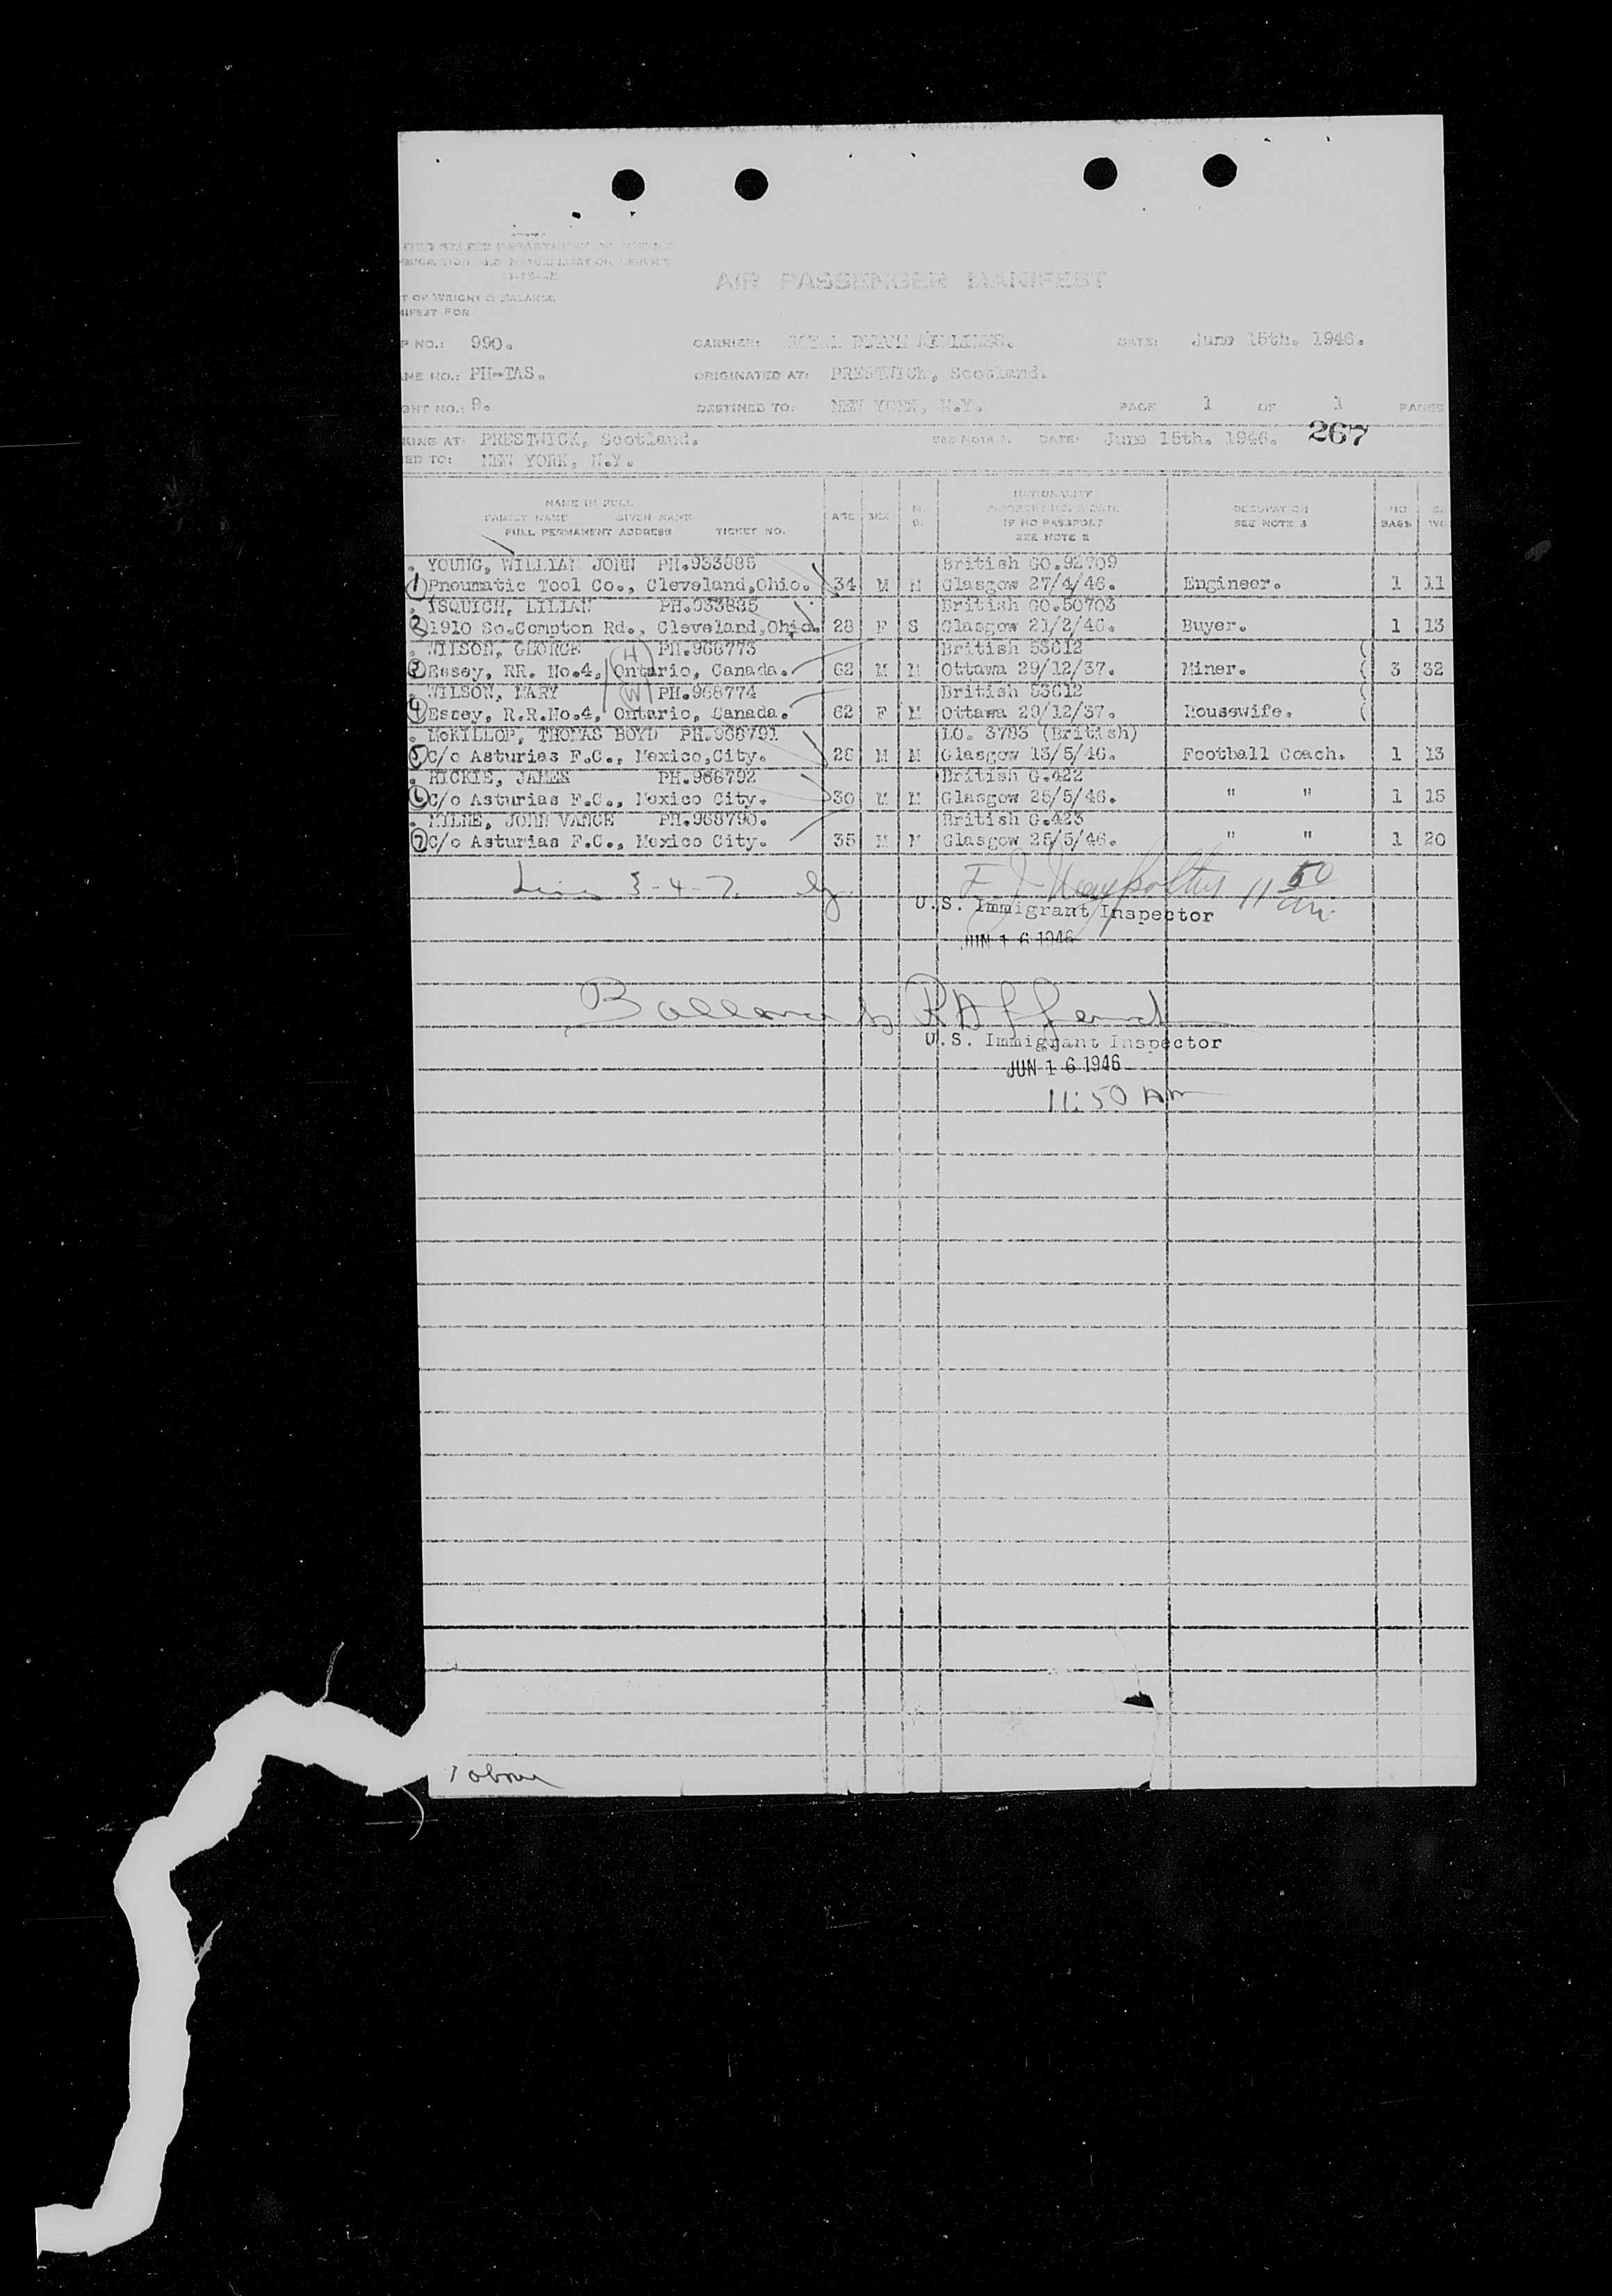 AIR PASSENGER MANIFEST
T OF WEIGHT & BALANCE
IFEST FOR
P NO.: 990. CARRIER: ROYAL DUTCH AIRLINES. DATE: June 15th. 1946.
ME NO.: PH-TAS. ORIGINATED AT: PRESTWICK, Scotland.
GHT NO.: 8. DESTINED TO: NEW YORK, N.Y. PAGE 1 OF 1 PAGES
KING AT: PRESTWICK, Scotland. SEE NOTE 2. DATE: June 15th. 1946. 267
ED TO: NEW YORK, N.Y.
NAME IN FULL
FAMILY NAME GIVEN NAME
FULL PERMANENT ADDRESS TICKET NO.
AGE SEX M. S.
NATIONALITY
PASSPORT NO. & DATE
IF NO PASSPORT
SEE NOTE 2
OCCUPATION
SEE NOTE 3
NO BAGS
. YOUNG, WILLIAM JOHN PH.933885 British GO.92709
1 Pneumatic Tool Co., Cleveland,Ohio. 34 M M Glasgow 27/4/46. Engineer. 1 11
. ISQUICH, LILIAN PH.933835 British GO.50703
2 1910 So.Compton Rd., Cleveland,Ohio. 28 F S Glasgow 21/2/46. Buyer. 1 13
. WILSON, GEORGE (H) PH.968773 British 53612 (
3 Essey, RR. No.4, Ontario, Canada. 62 M M Ottawa 29/12/37. Miner. ( 3 32
. WILSON, MARY (W) PH.968774 British 53612 (
4 Essey, R.R.No.4, Ontario, Canada. 62 F M Ottawa 29/12/37. Housewife. (
. McKILLOP, THOMAS BOYD PH.968791 LO. 3783 (British)
5 C/o Asturias F.C., Mexico,City. 28 M M Glasgow 13/5/46. Football Coach. 1 13
. HICKIE, JAMES PH.968792 British G.422
6 C/o Asturias F.C., Mexico City. 30 M M Glasgow 25/5/46. " " 1 15
. MILNE, JOHN VANCE PH.968790. British G.423
7 C/o Asturias F.C., Mexico City. 35 M M Glasgow 25/5/46. " " 1 20
Lines 3-4-7 by 11 50 am
U.S. Immigrant Inspector
JUN 16 1946
Balance by
U.S. Immigrant Inspector
JUN 16 1946
11:50 AM
7 above